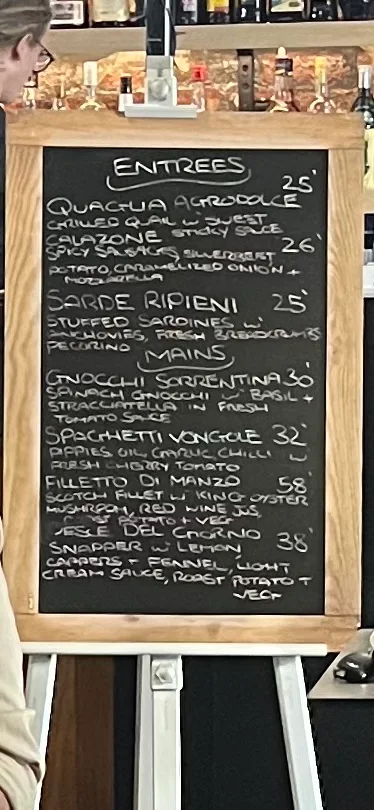 ENTREES
QUAGLIA AGRODOLCE 25'
GRILLED QUAIL W' SWEET
STICKY SAUCE
CALAZONE 26'
SPICY SALSAGE, SILVERBEET
POTATO, CARAMELIZED ONION +
MOZZARELLA
SARDE RIPIENI 25'
STUFFED SARDINES W'
ANCHOVIES, FRESH BREADCRUMBS
PECORINO
MAINS
GNOCCHI SORRENTINA 30'
SPINACH GNOCCHI W' BASIL +
STRACCIATELLA IN FRESH
TOMATO SAUCE
SPAGHETTI VONGOLE 32'
PIPPIES OIL, GARLIC, CHILLI W
FRESH CHERRY TOMATO
FILLETTO DI MANZO 58'
SCOTCH FILLET W' KING OYSTER
MUSHROOM, RED WINE JUS,
POTATO + VEG
PESCE DEL GIORNO 38'
SNAPPER W' LEMON
CAPPERS + FENNEL, LIGHT
CREAM SAUCE, ROAST POTATO +
VEG